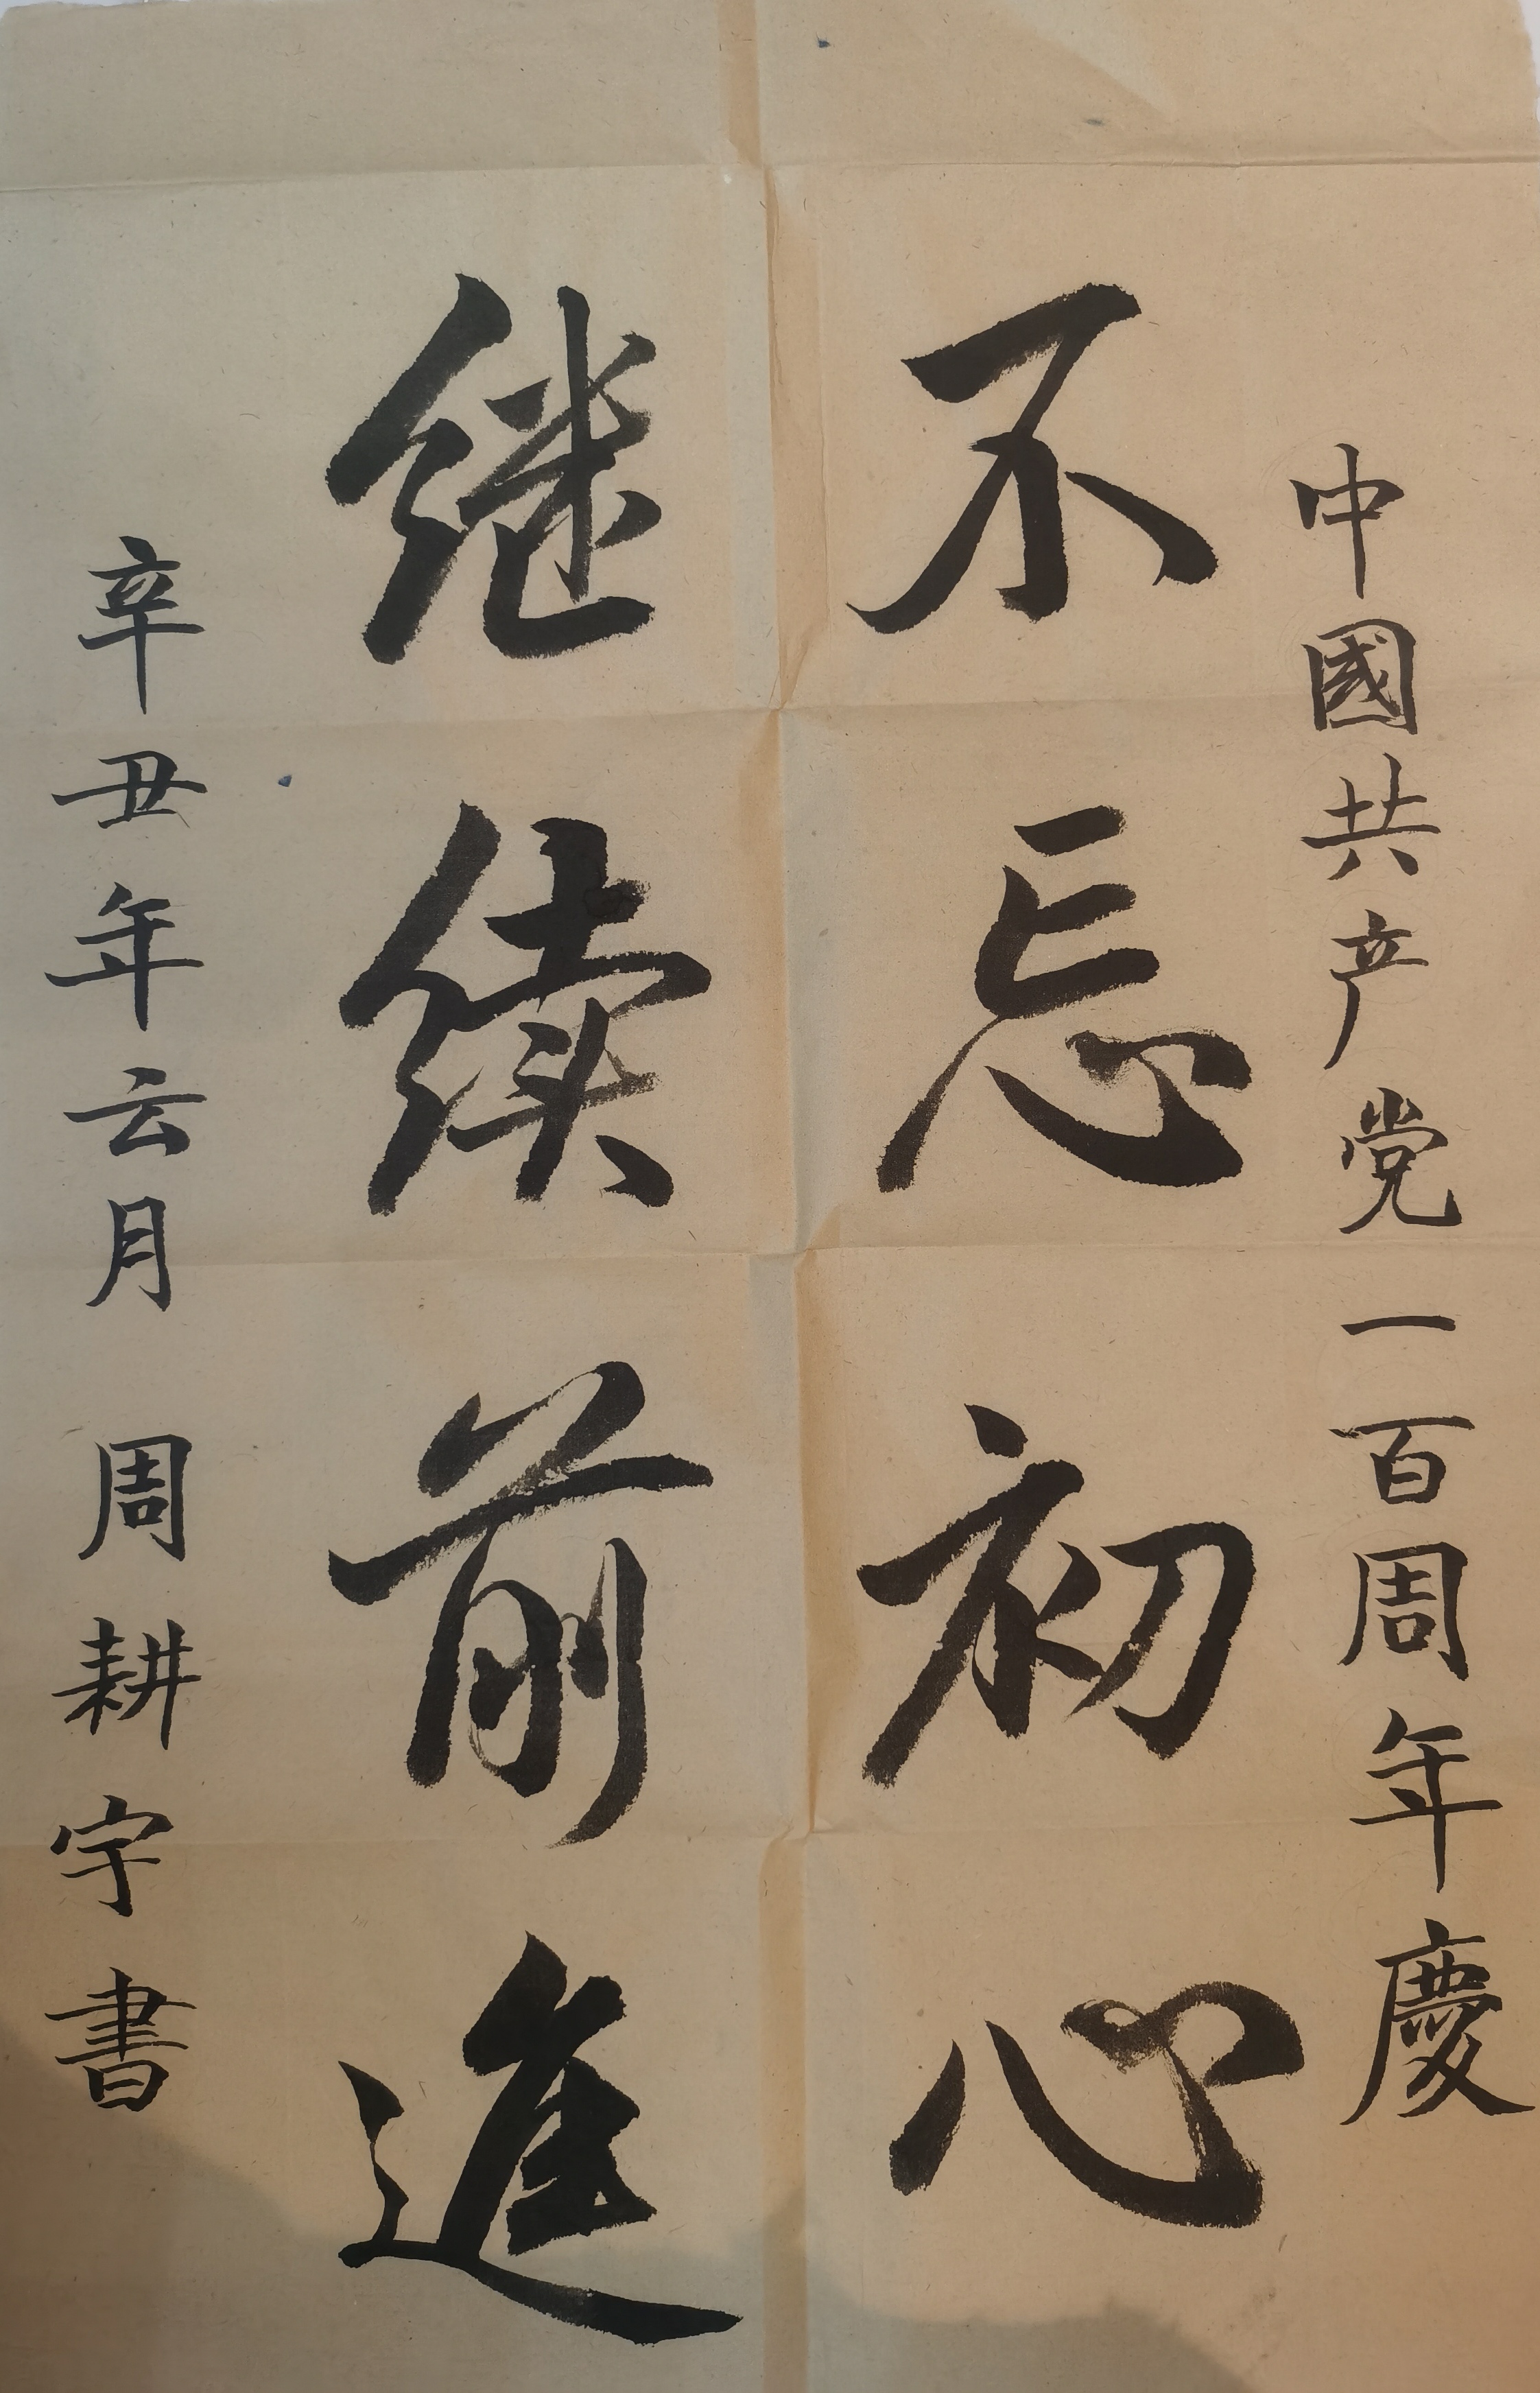 中國共产党一百周年慶
不忘初心
继续前進
辛丑年云月 周耕宇書